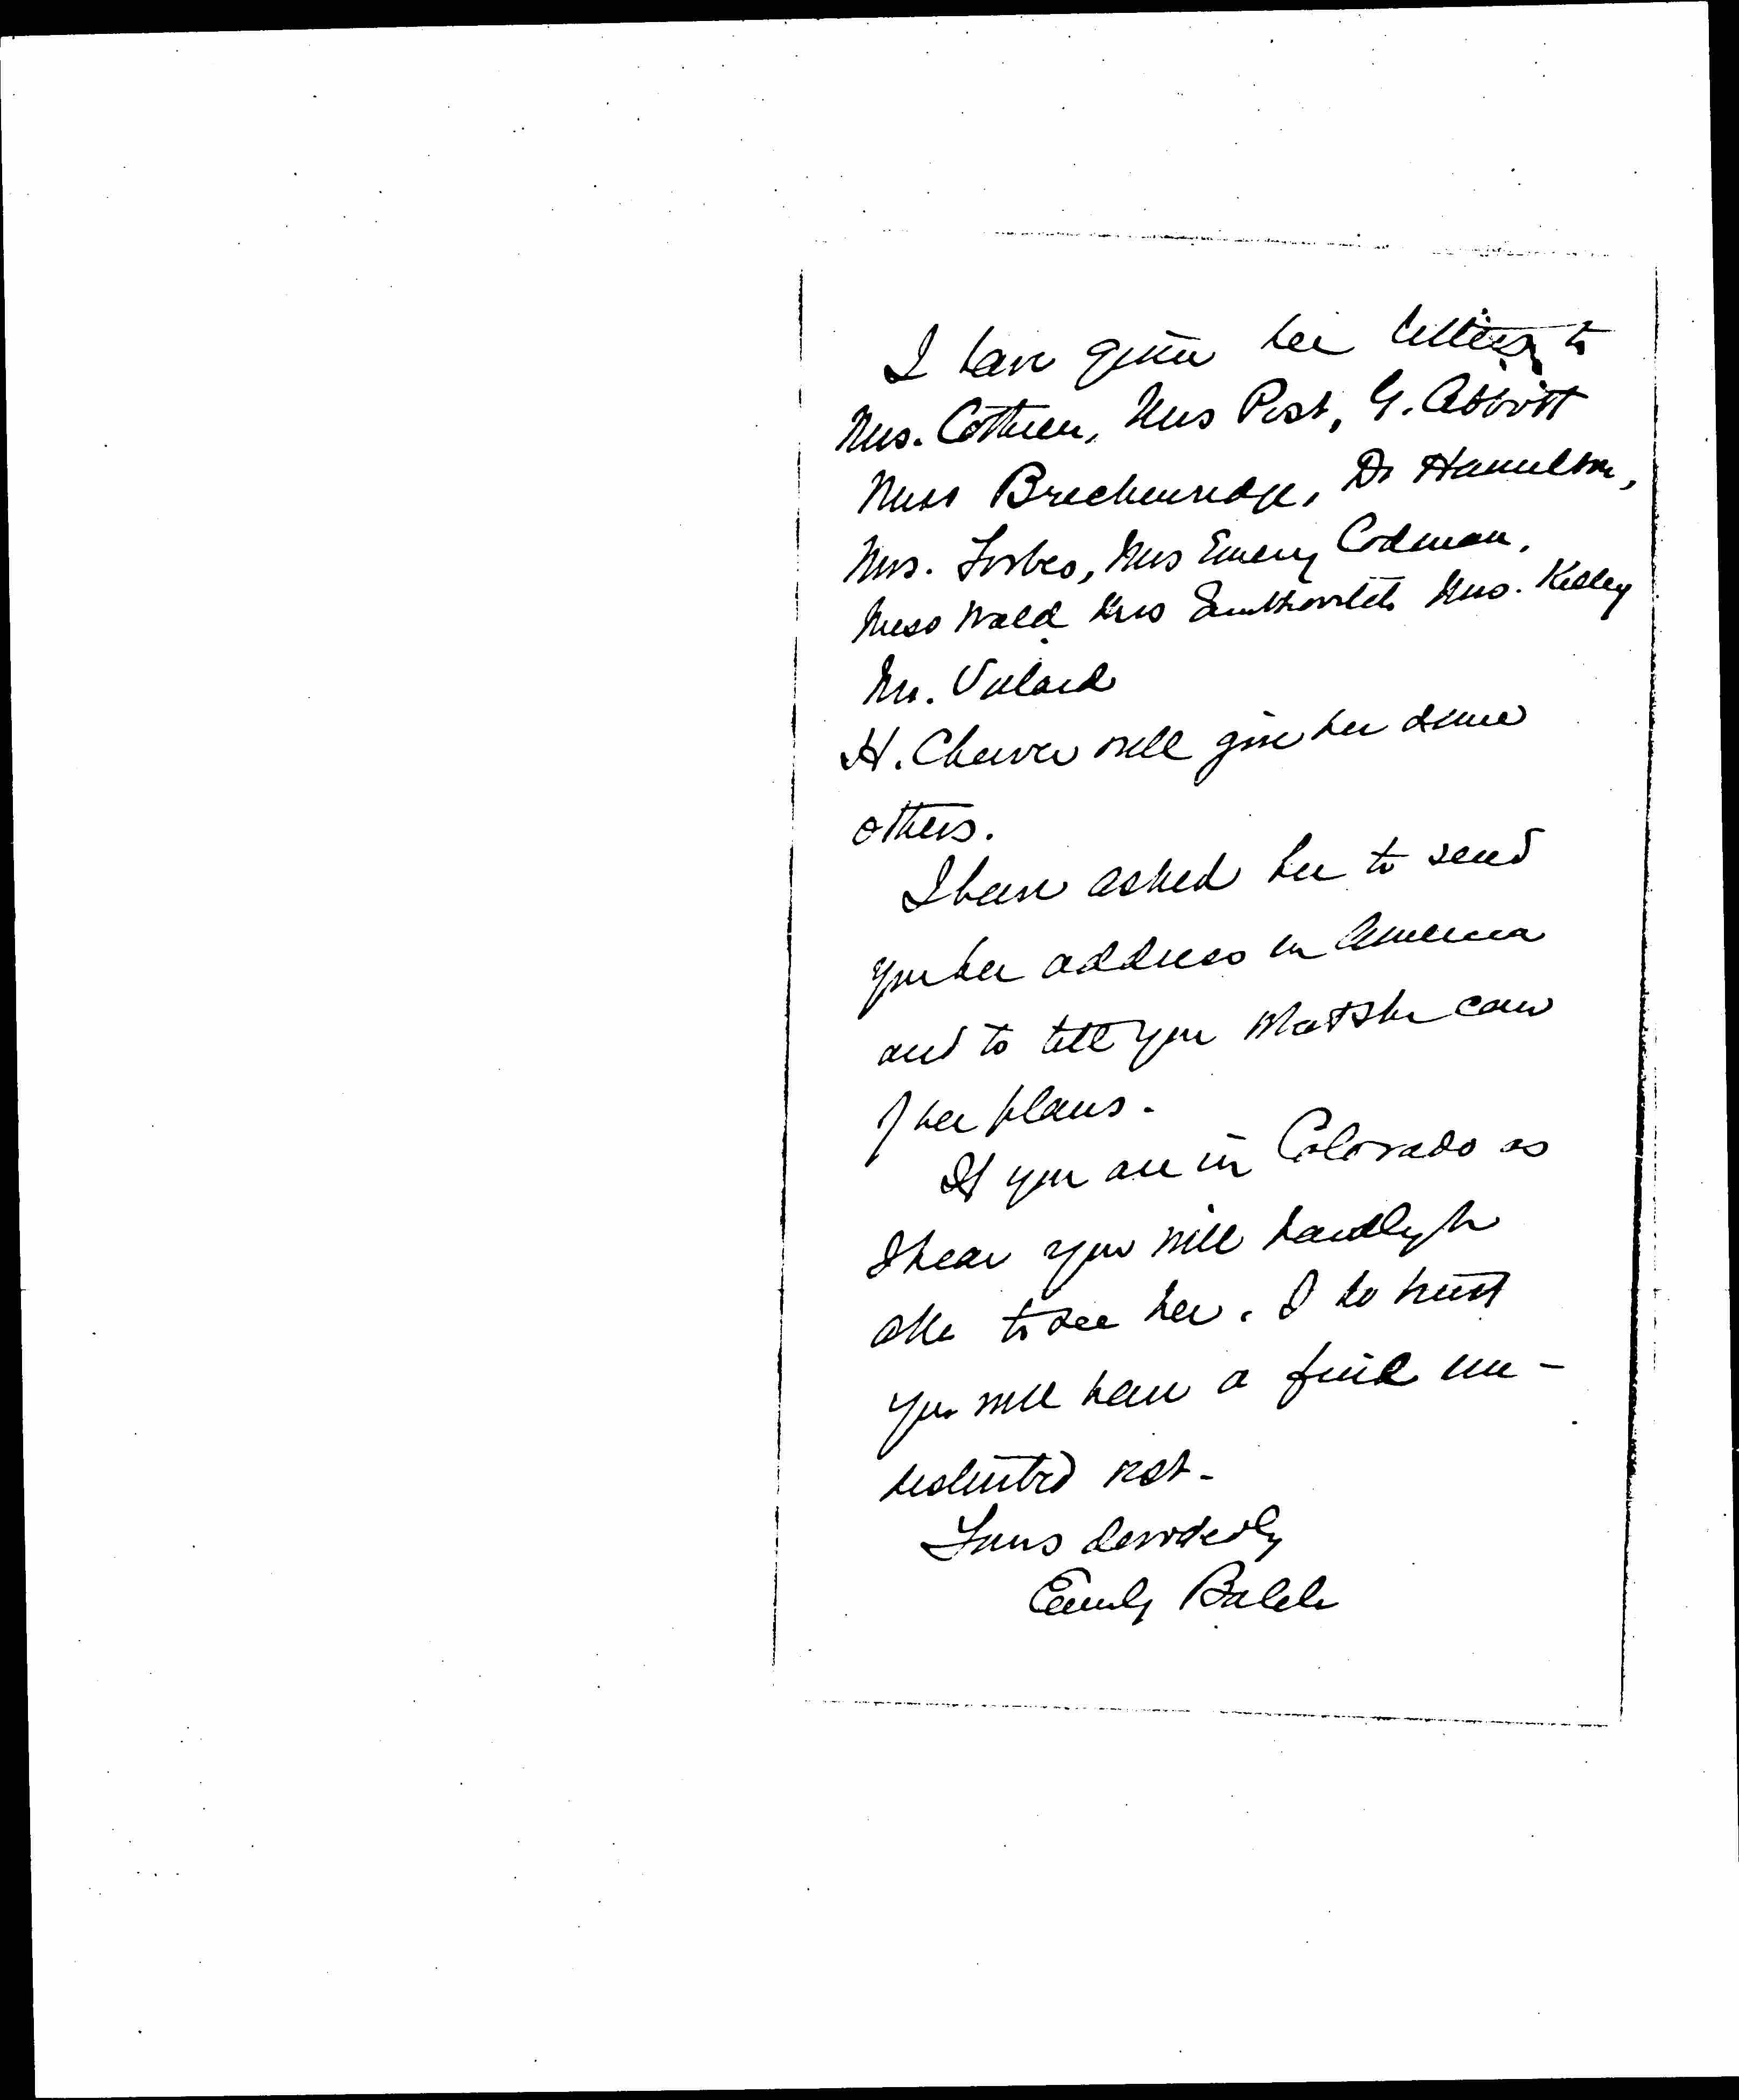 I have given her letters to
Mrs. Cothren, Mrs Post, G. Abbott
Miss Breckenridge, Dr Hamilton,
Mrs. Forbes, Mrs Emery Codman,
Miss Wald Mrs Simkhovitch Mrs. Kelley
Mr. Villard
H. Cheever will give her some
others.
I have asked her to send
you her address in America
and to tell you what she can
of her plans.
If you are in Colorado as
I hear you will hardly be
able to see her. I do trust
you will have a fine un-
disturbed rest.
Yours devotedly
Emily Balch